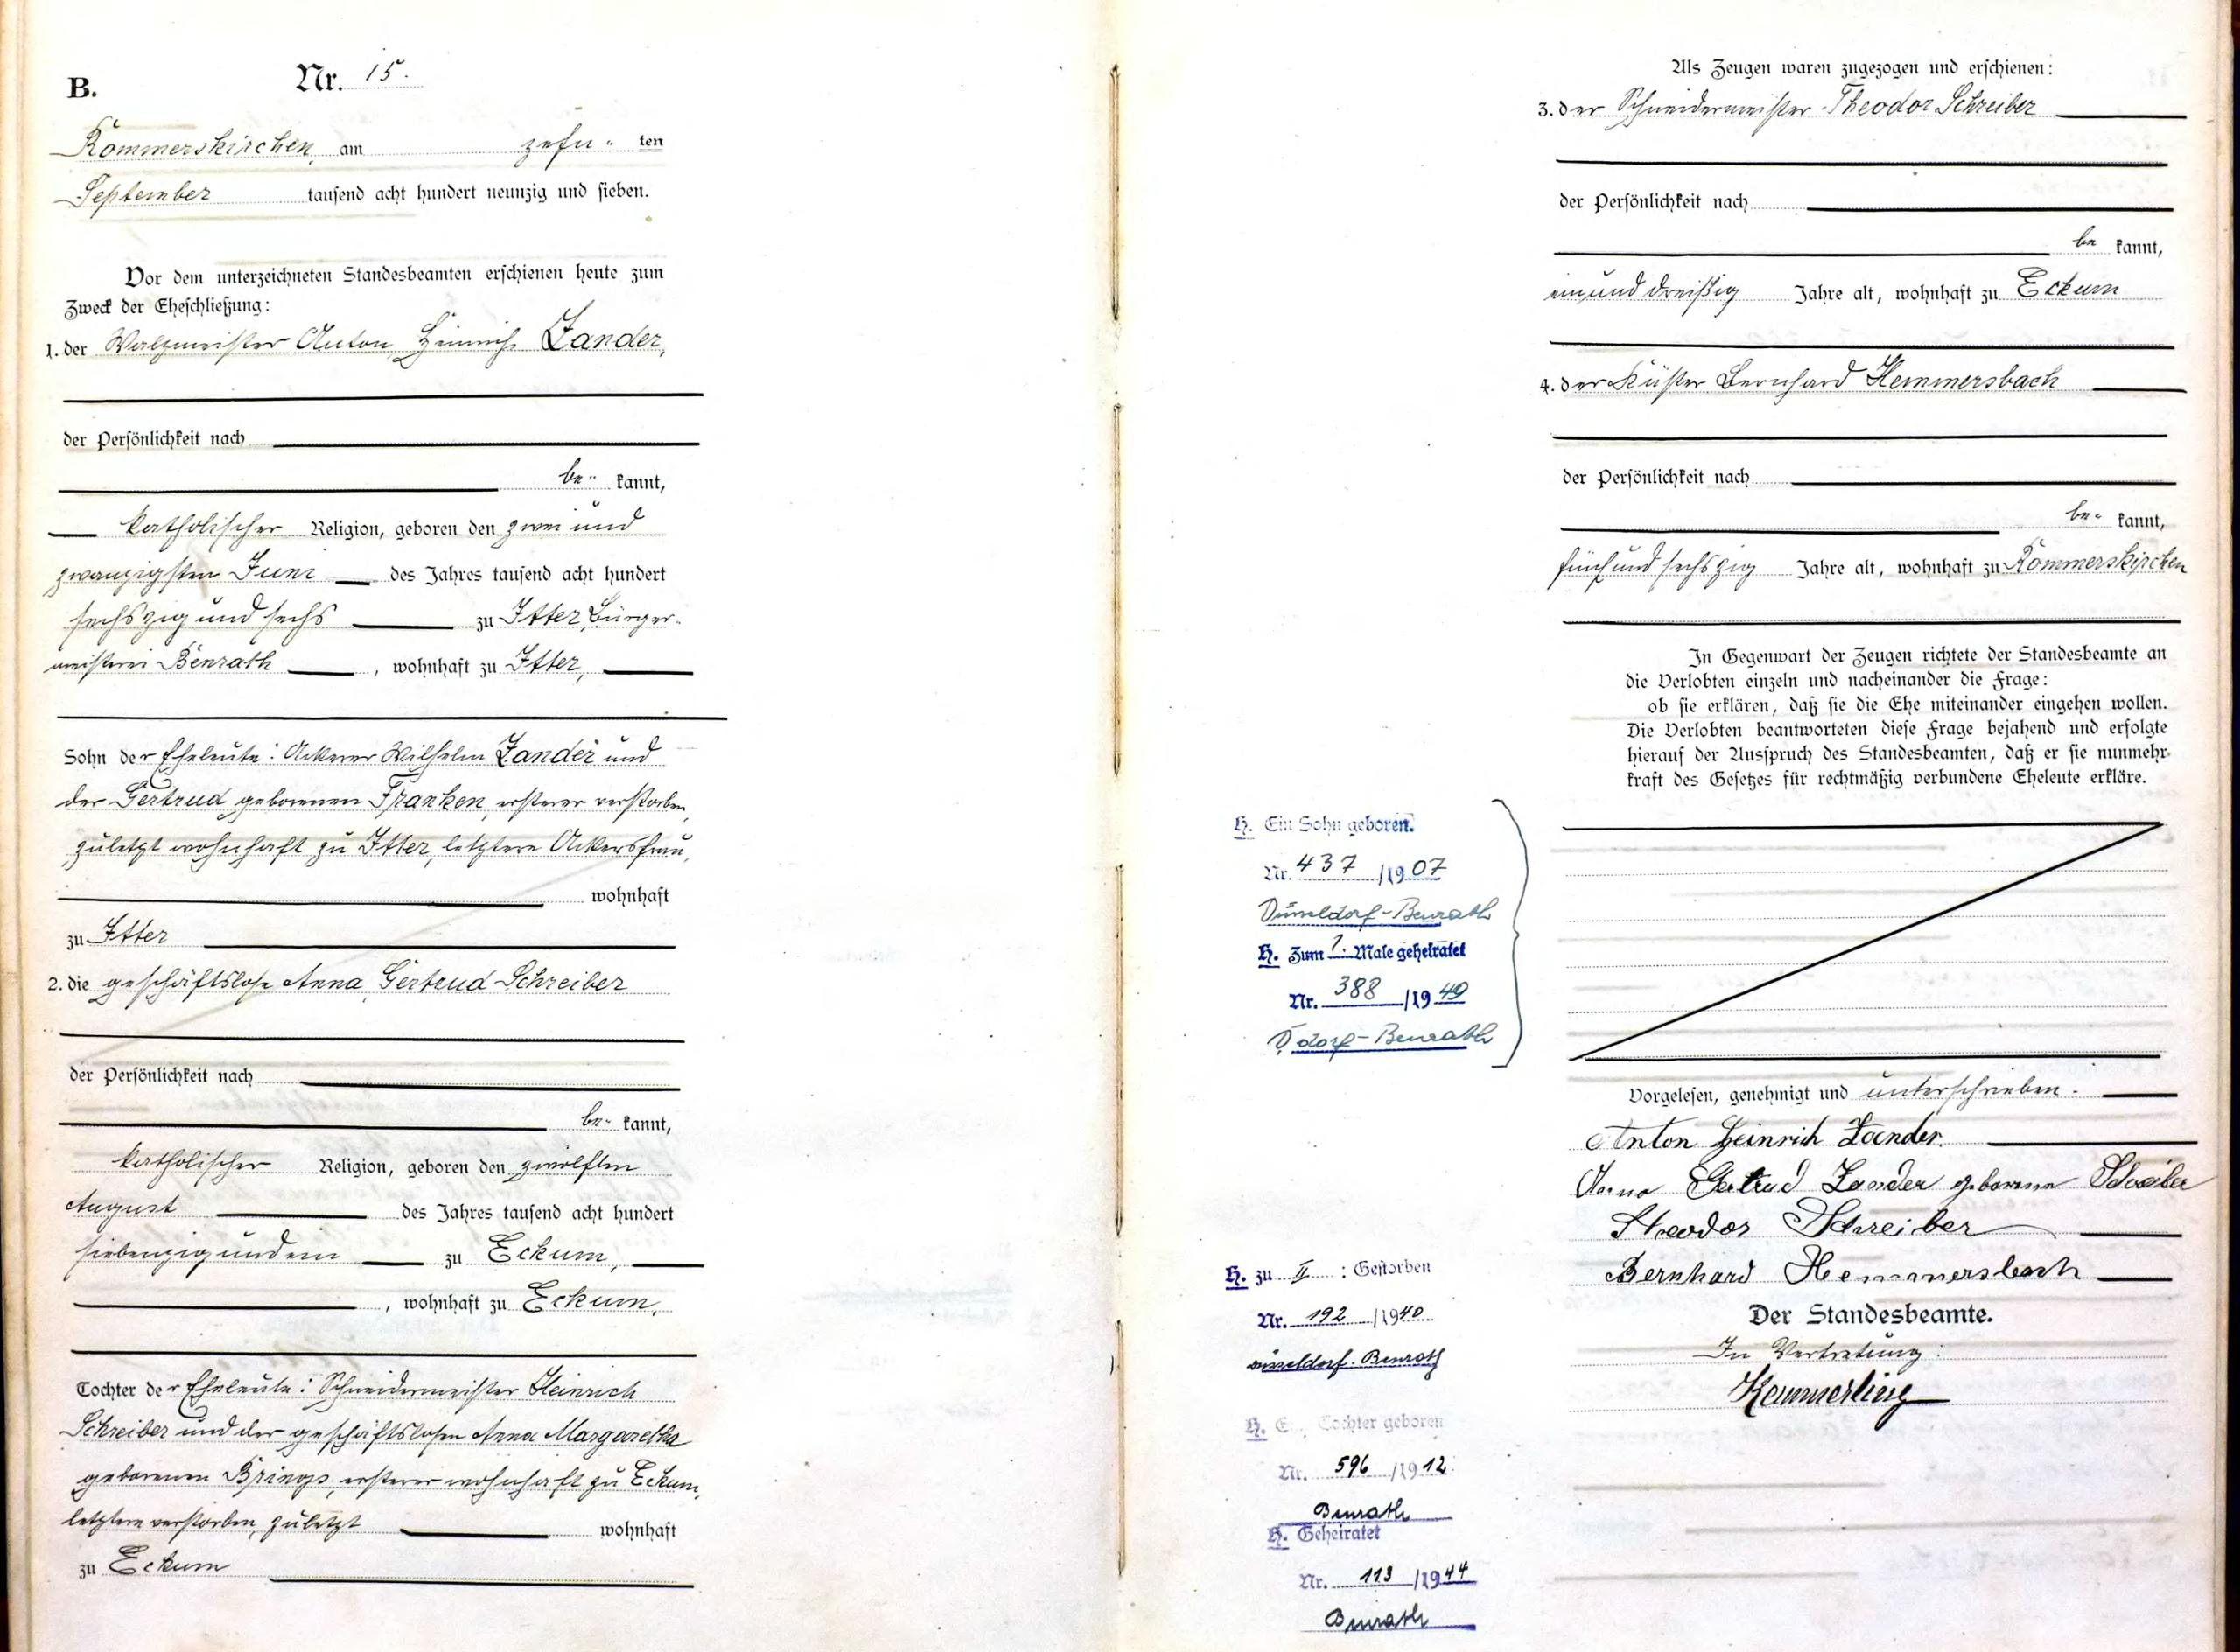 B. Nr. 15.
Rommerskirchen, am zehn- ten
September tausend acht hundert neunzig und sieben.
Vor dem unterzeichneten Standesbeamten erschienen heute zum
Zweck der Eheschließung:
1. der Walzmeister Anton Heinrich Zander,
der Persönlichkeit nach
be- kannt,
katholischer Religion, geboren den zwei und
zwanzigsten Juni des Jahres tausend acht hundert
sechszig und sechs zu Itter, Bürger-
meisterei Benrath, wohnhaft zu Itter,
Sohn der Eheleute: Ackerer Wilhelm Zander und
der Gertrud geborenen Franken, ersterer verstorben,
zuletzt wohnhaft zu Itter, letztere Ackersfrau,
wohnhaft
zu Itter
2. die geschäftslose Anna Gertrud Schreiber
der Persönlichkeit nach
be- kannt,
katholischer Religion, geboren den zwölften
August des Jahres tausend acht hundert
siebenzig und ein zu Eckum,
, wohnhaft zu Eckum,
Tochter der Eheleute: Schneidermeister Heinrich
Schreiber und der geschäftslosen Anna Margaretha
geborenen Brings, ersterer wohnhaft zu Eckum,
letztere verstorben, zuletzt wohnhaft
zu Eckum
Als Zeugen waren zugezogen und erschienen:
3. der Schneidermeister Theodor Schreiber
der Persönlichkeit nach
be kannt,
einunddreißig Jahre alt, wohnhaft zu Eckum
4. der Küster Bernhard Hemmersbach
der Persönlichkeit nach
be- kannt,
fünfundsechszig Jahre alt, wohnhaft zu Rommerskirchen
In Gegenwart der Zeugen richtete der Standesbeamte an
die Verlobten einzeln und nacheinander die Frage:
ob sie erklären, daß sie die Ehe miteinander eingehen wollen.
Die Verlobten beantworteten diese Frage bejahend und erfolgte
hierauf der Ausspruch des Standesbeamten, daß er sie nunmehr
kraft des Gesetzes für rechtmäßig verbundene Eheleute erkläre.
Vorgelesen, genehmigt und unterschrieben.
Anton Heinrich Zander.
Anna Gertrud Zander geborene Schreiber
Theodor Schreiber
Bernhard Hemmersbach
Der Standesbeamte.
In Vertretung:
Kemmerling
H. Ein Sohn geboren.
Nr. 437 /1907
Düsseldorf-Benrath
H. Zum 1. Male geheiratet
Nr. 388 /1940
D'dorf-Benrath
H. zu II : Gestorben
Nr. 192 /1940
Düsseldorf-Benrath
H. E. Tochter geboren
Nr. 596 /1912
Benrath
H. Geheiratet
Nr. 113 /1944
Benrath